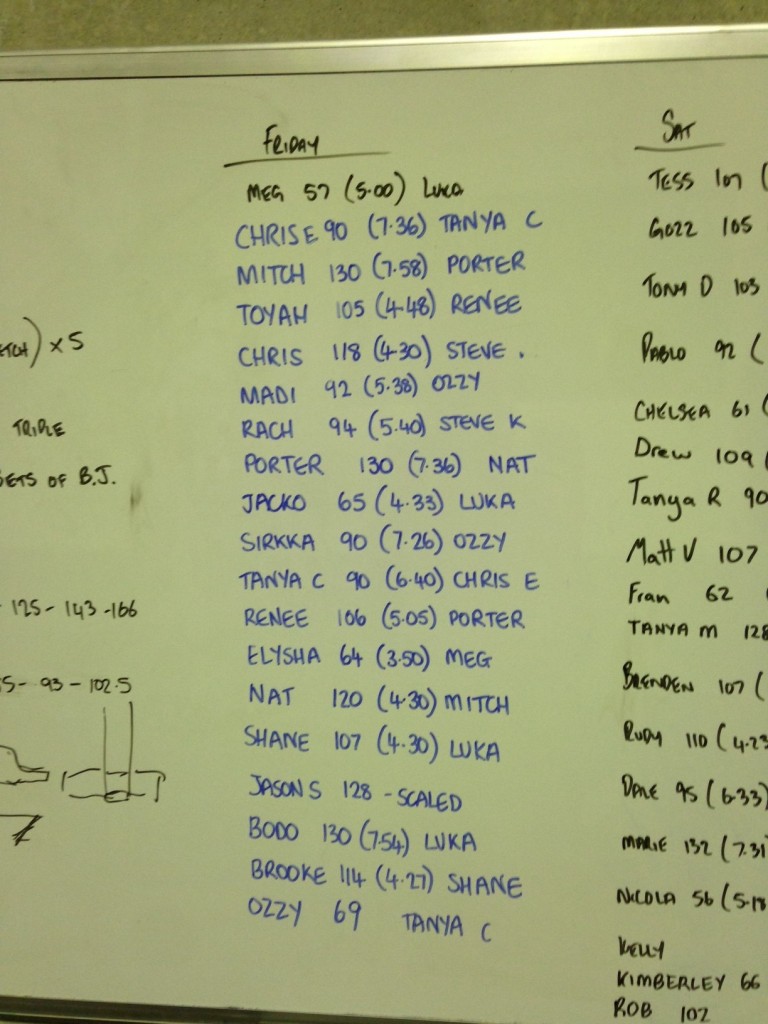 ETCH) x 5
TRIPLE
SETS OF B.J.
125 - 143 - 166
5 - 93 - 102.5
FRIDAY
MEG 57 (5.00) LUKA
CHRIS E 90 (7.36) TANYA C
MITCH 130 (7.58) PORTER
TOYAH 105 (4.48) RENEE
CHRIS 118 (4.30) STEVE .
MADI 92 (5.38) OZZY
RACH 94 (5.40) STEVE K
PORTER 130 (7.36) NAT
JACKO 65 (4.33) LUKA
SIRKKA 90 (7.26) OZZY
TANYA C 90 (6.40) CHRIS E
RENEE 106 (5.05) PORTER
ELYSHA 64 (3.50) MEG
NAT 120 (4.30) MITCH
SHANE 107 (4.30) LUKA
JASON S 128 - SCALED
BODO 130 (7.54) LUKA
BROOKE 114 (4.27) SHANE
OZZY 69 TANYA C
SAT
TESS 107 (
GOZZ 105
TONY D 103
PABLO 92 (
CHELSEA 61 (
Drew 109 (
Tanya R 90
Matt V 107
Fran 62
TANYA M 128
BRENDEN 107 (
RUDY 110 (4.23
DALE 95 (6.33)
MARIE 132 (7.31
NICOLA 56 (5.18
KELLY
KIMBERLEY 66
ROB 102